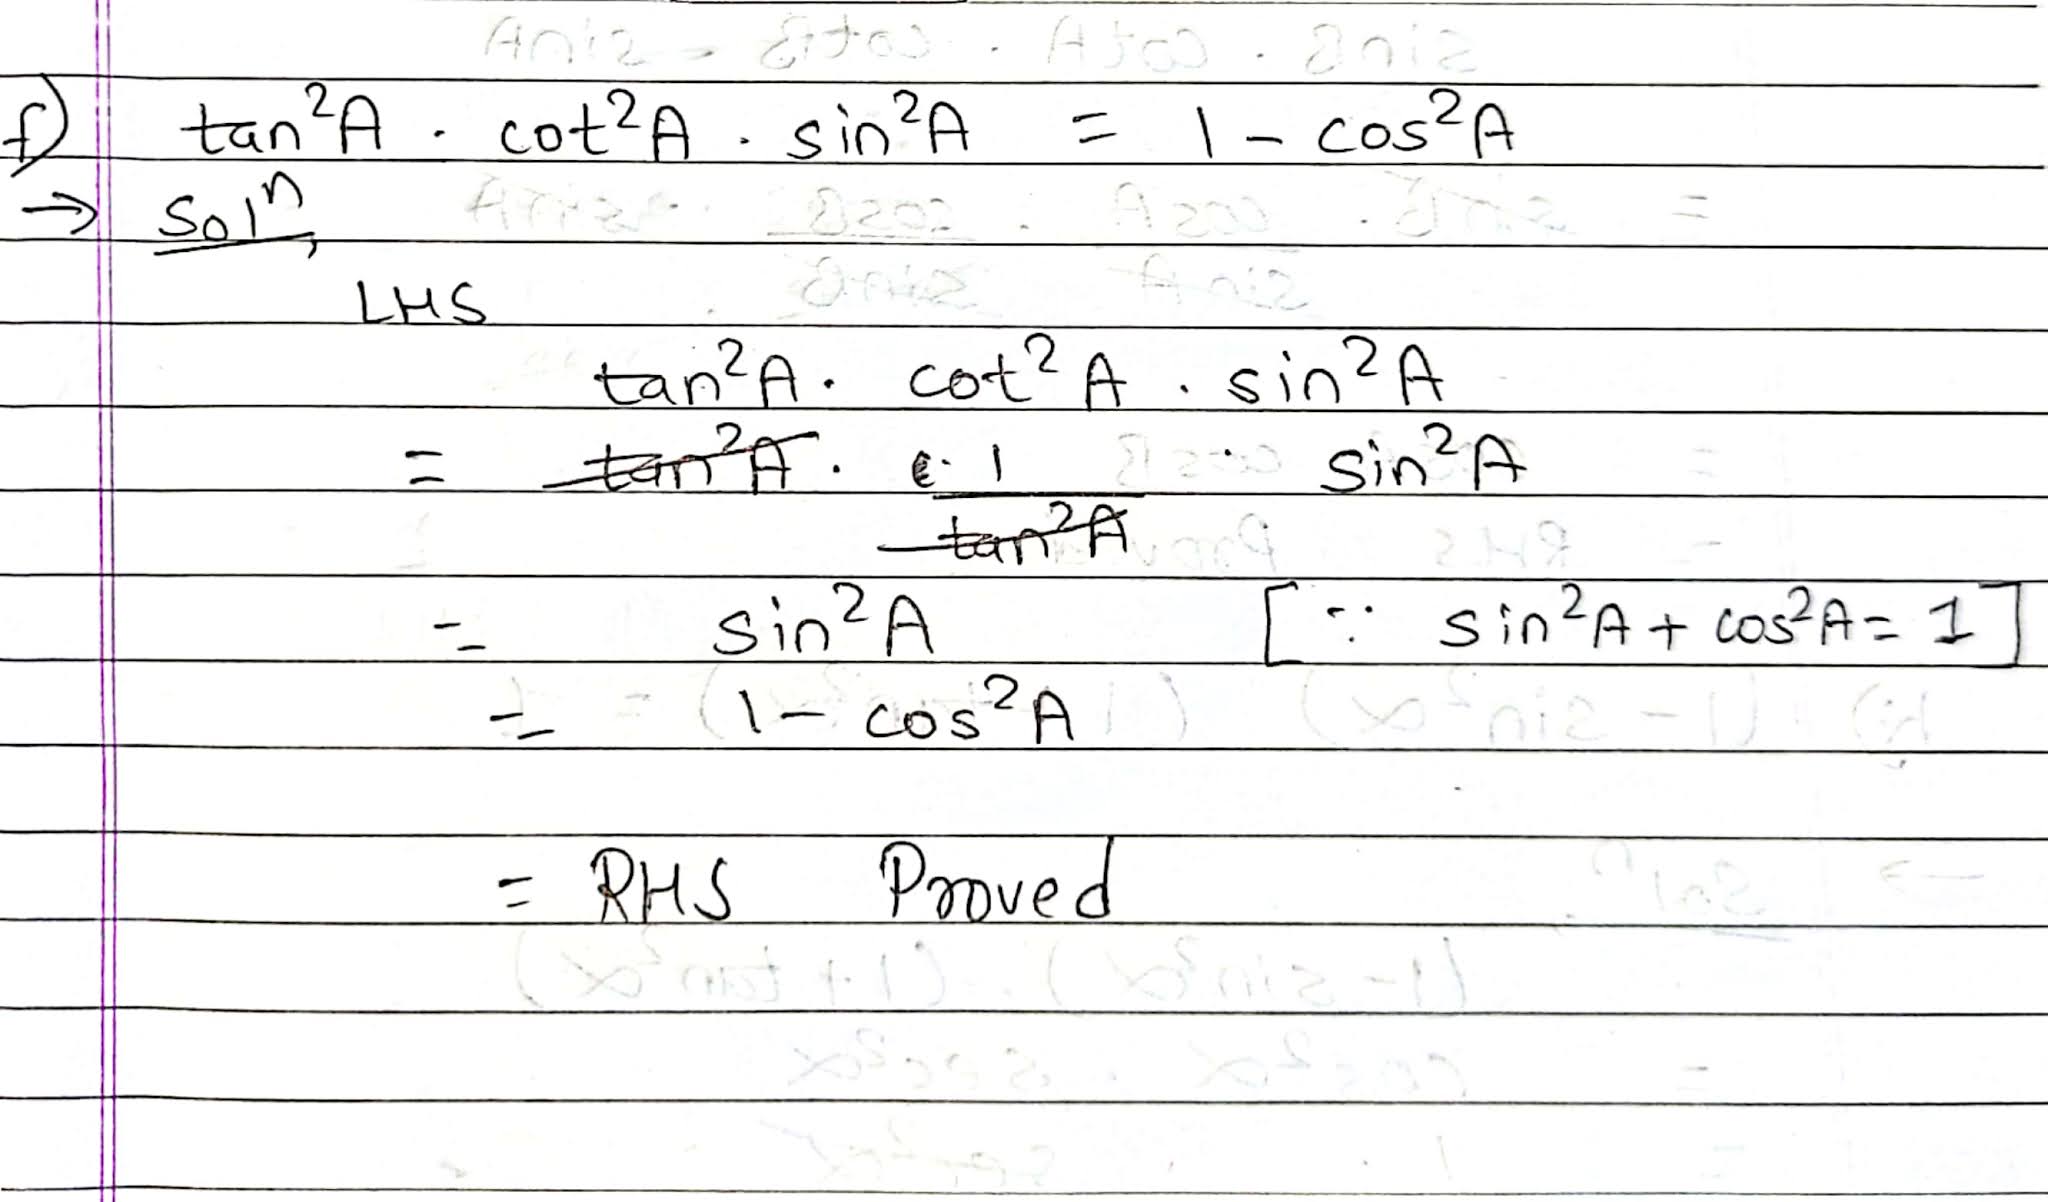 f) tan²A . cot²A . sin²A = 1 - cos²A
→ Solⁿ,
LHS
tan²A . cot²A . sin²A
= tan²A . 1/tan²A . sin²A
= sin²A [∵ sin²A + cos²A = 1]
= 1 - cos²A
= RHS Proved